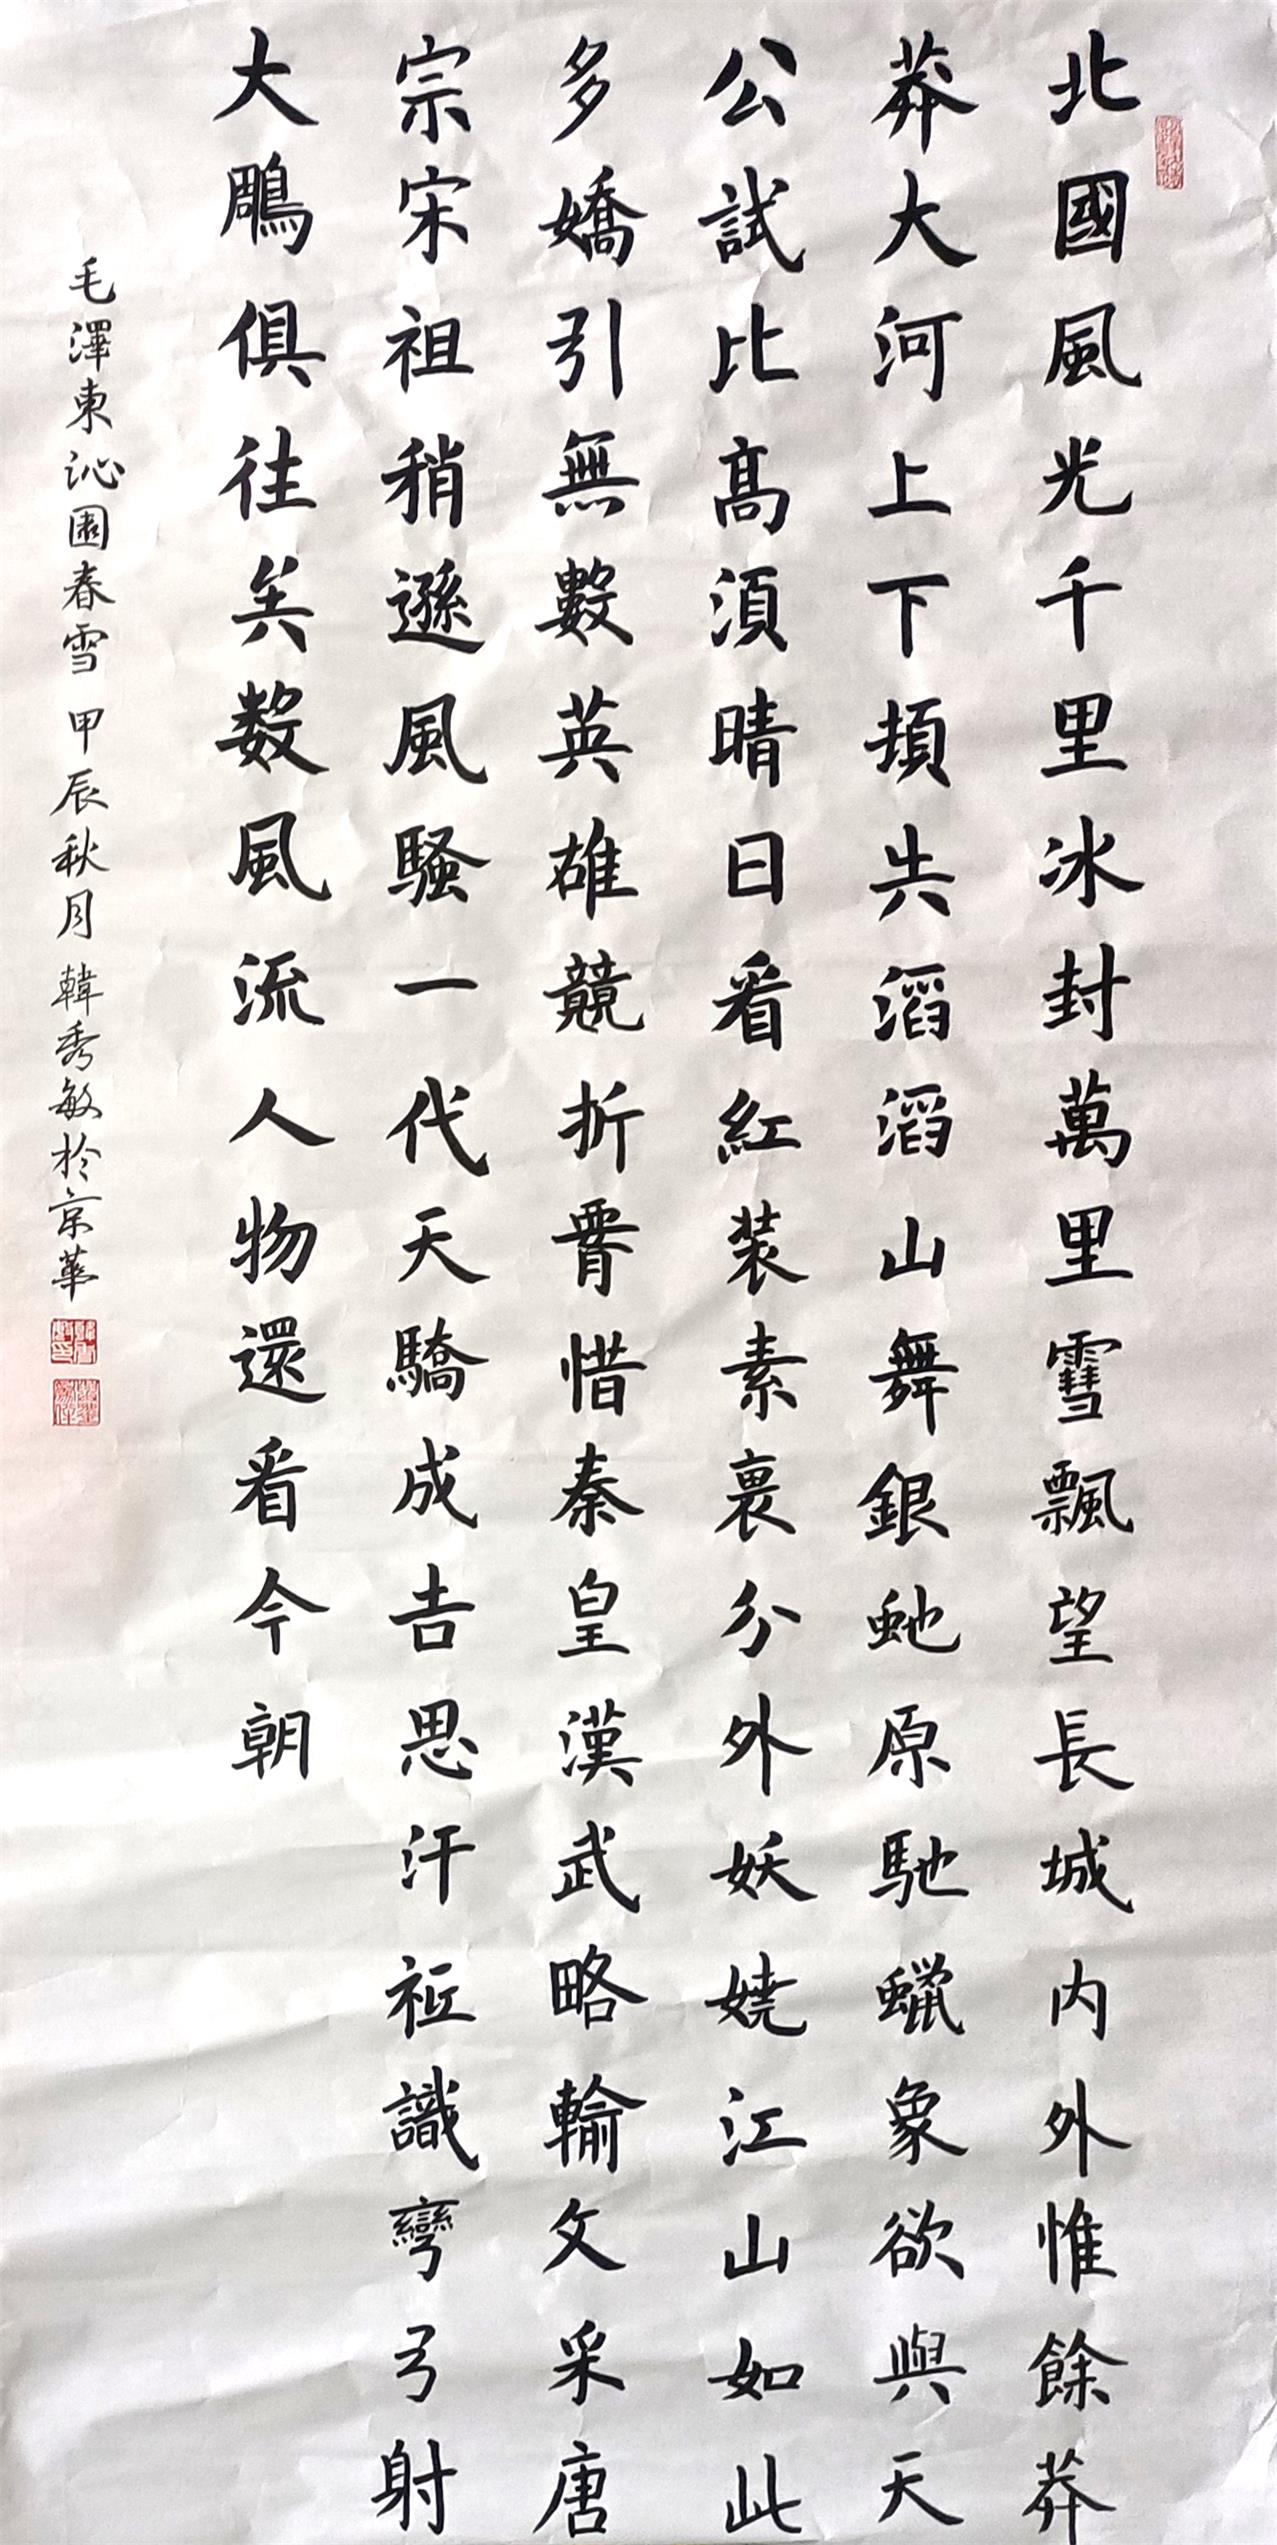 北國風光千里冰封萬里雪飄望長城内外惟餘莽
莽大河上下頓失滔滔山舞銀虵原馳蠟象欲與天
公試比髙湏晴日看紅装素裹分外妖嬈江山如此
多嬌引無數英雄競折腰惜秦皇漢武略輸文采唐
宗宋祖稍遜風騷一代天驕成吉思汗衹識彎弓射
大鵰俱往矣数風流人物還看今朝
毛澤東沁園春雪 甲辰秋月 韓秀敏於京華